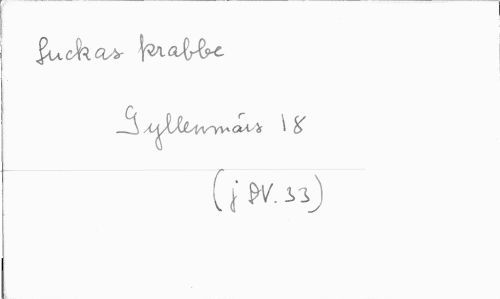 Luckas krabbe
Gyllenmärs 18
(j DV. 33)